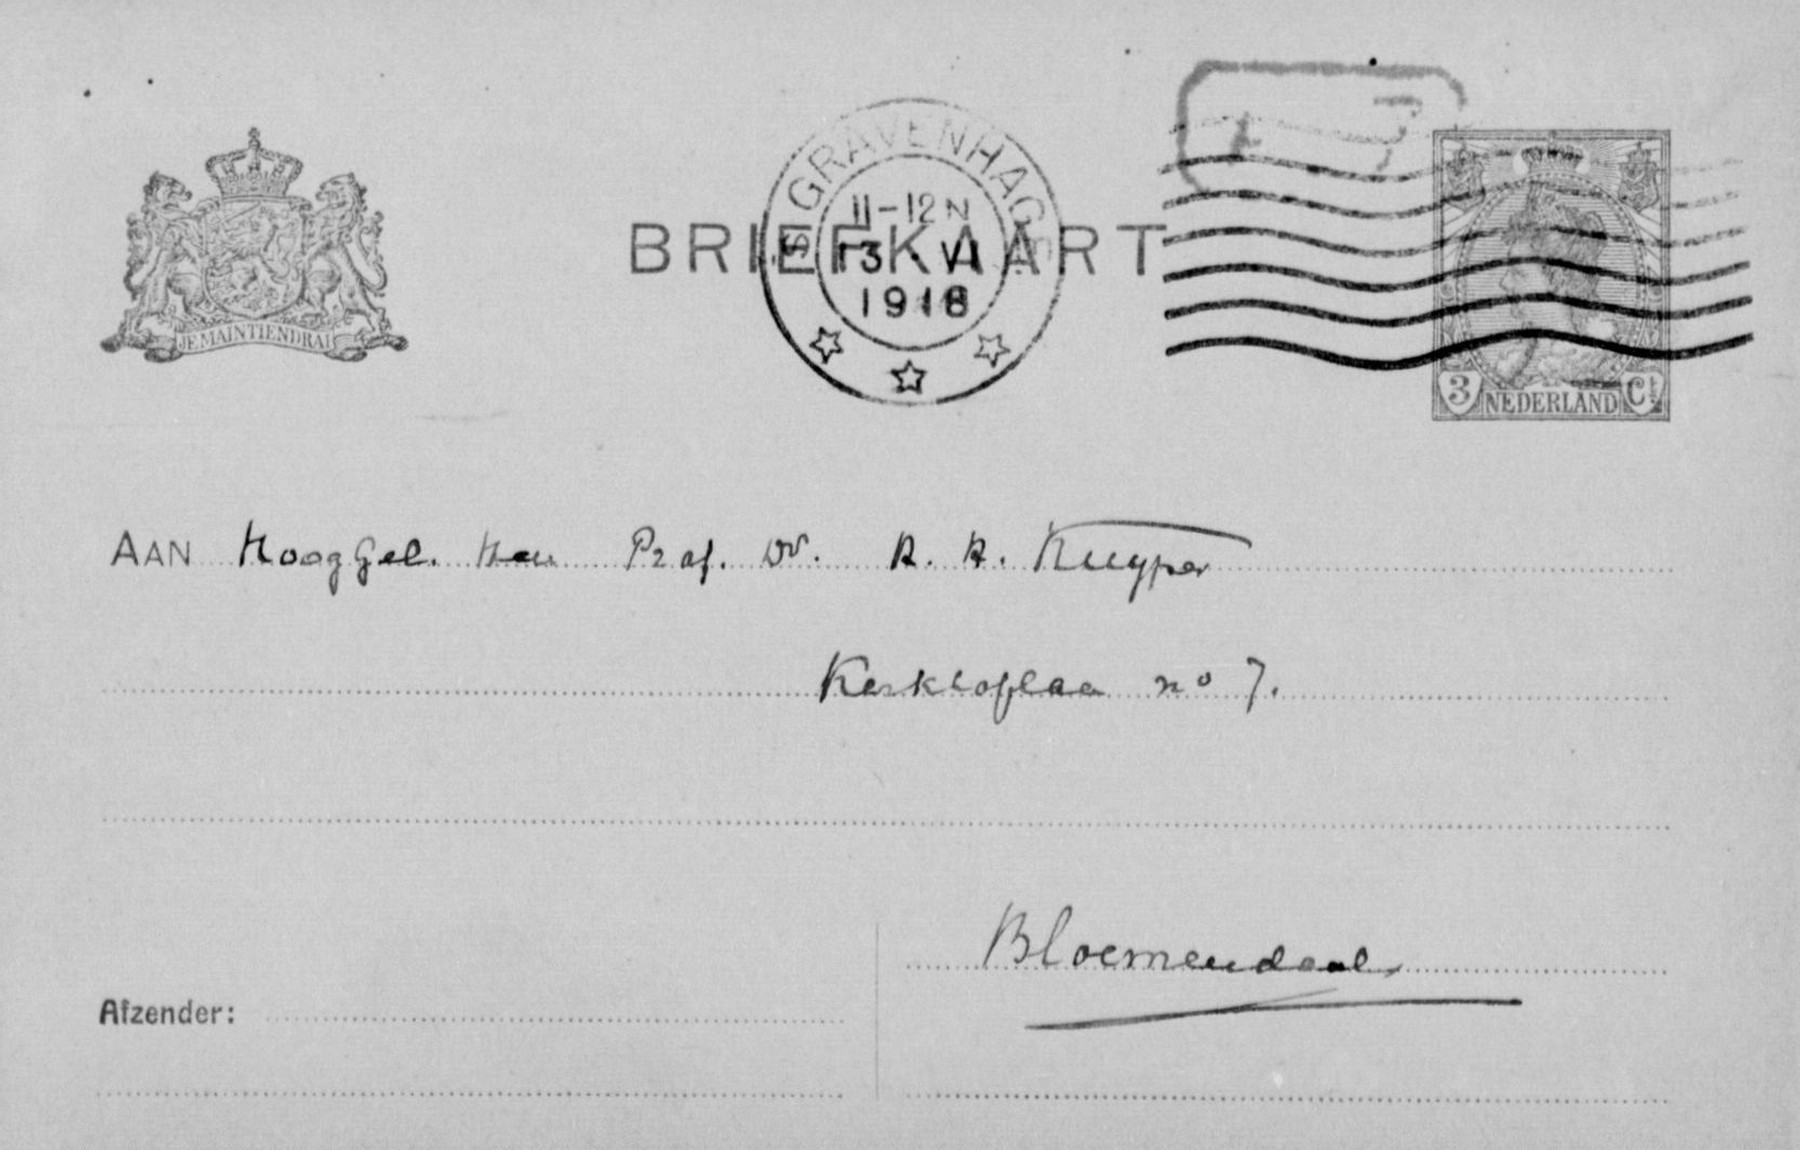 'S GRAVENHAGE
11-12 N
13 VI
1918
BRIEFKAART
JE MAINTIENDRAI
3 Ct
NEDERLAND
AAN HoogGel. Heer Prof. Dr. H. H. Kuyper
Kerkhoflaan no 7.
Bloemendaal
Afzender: